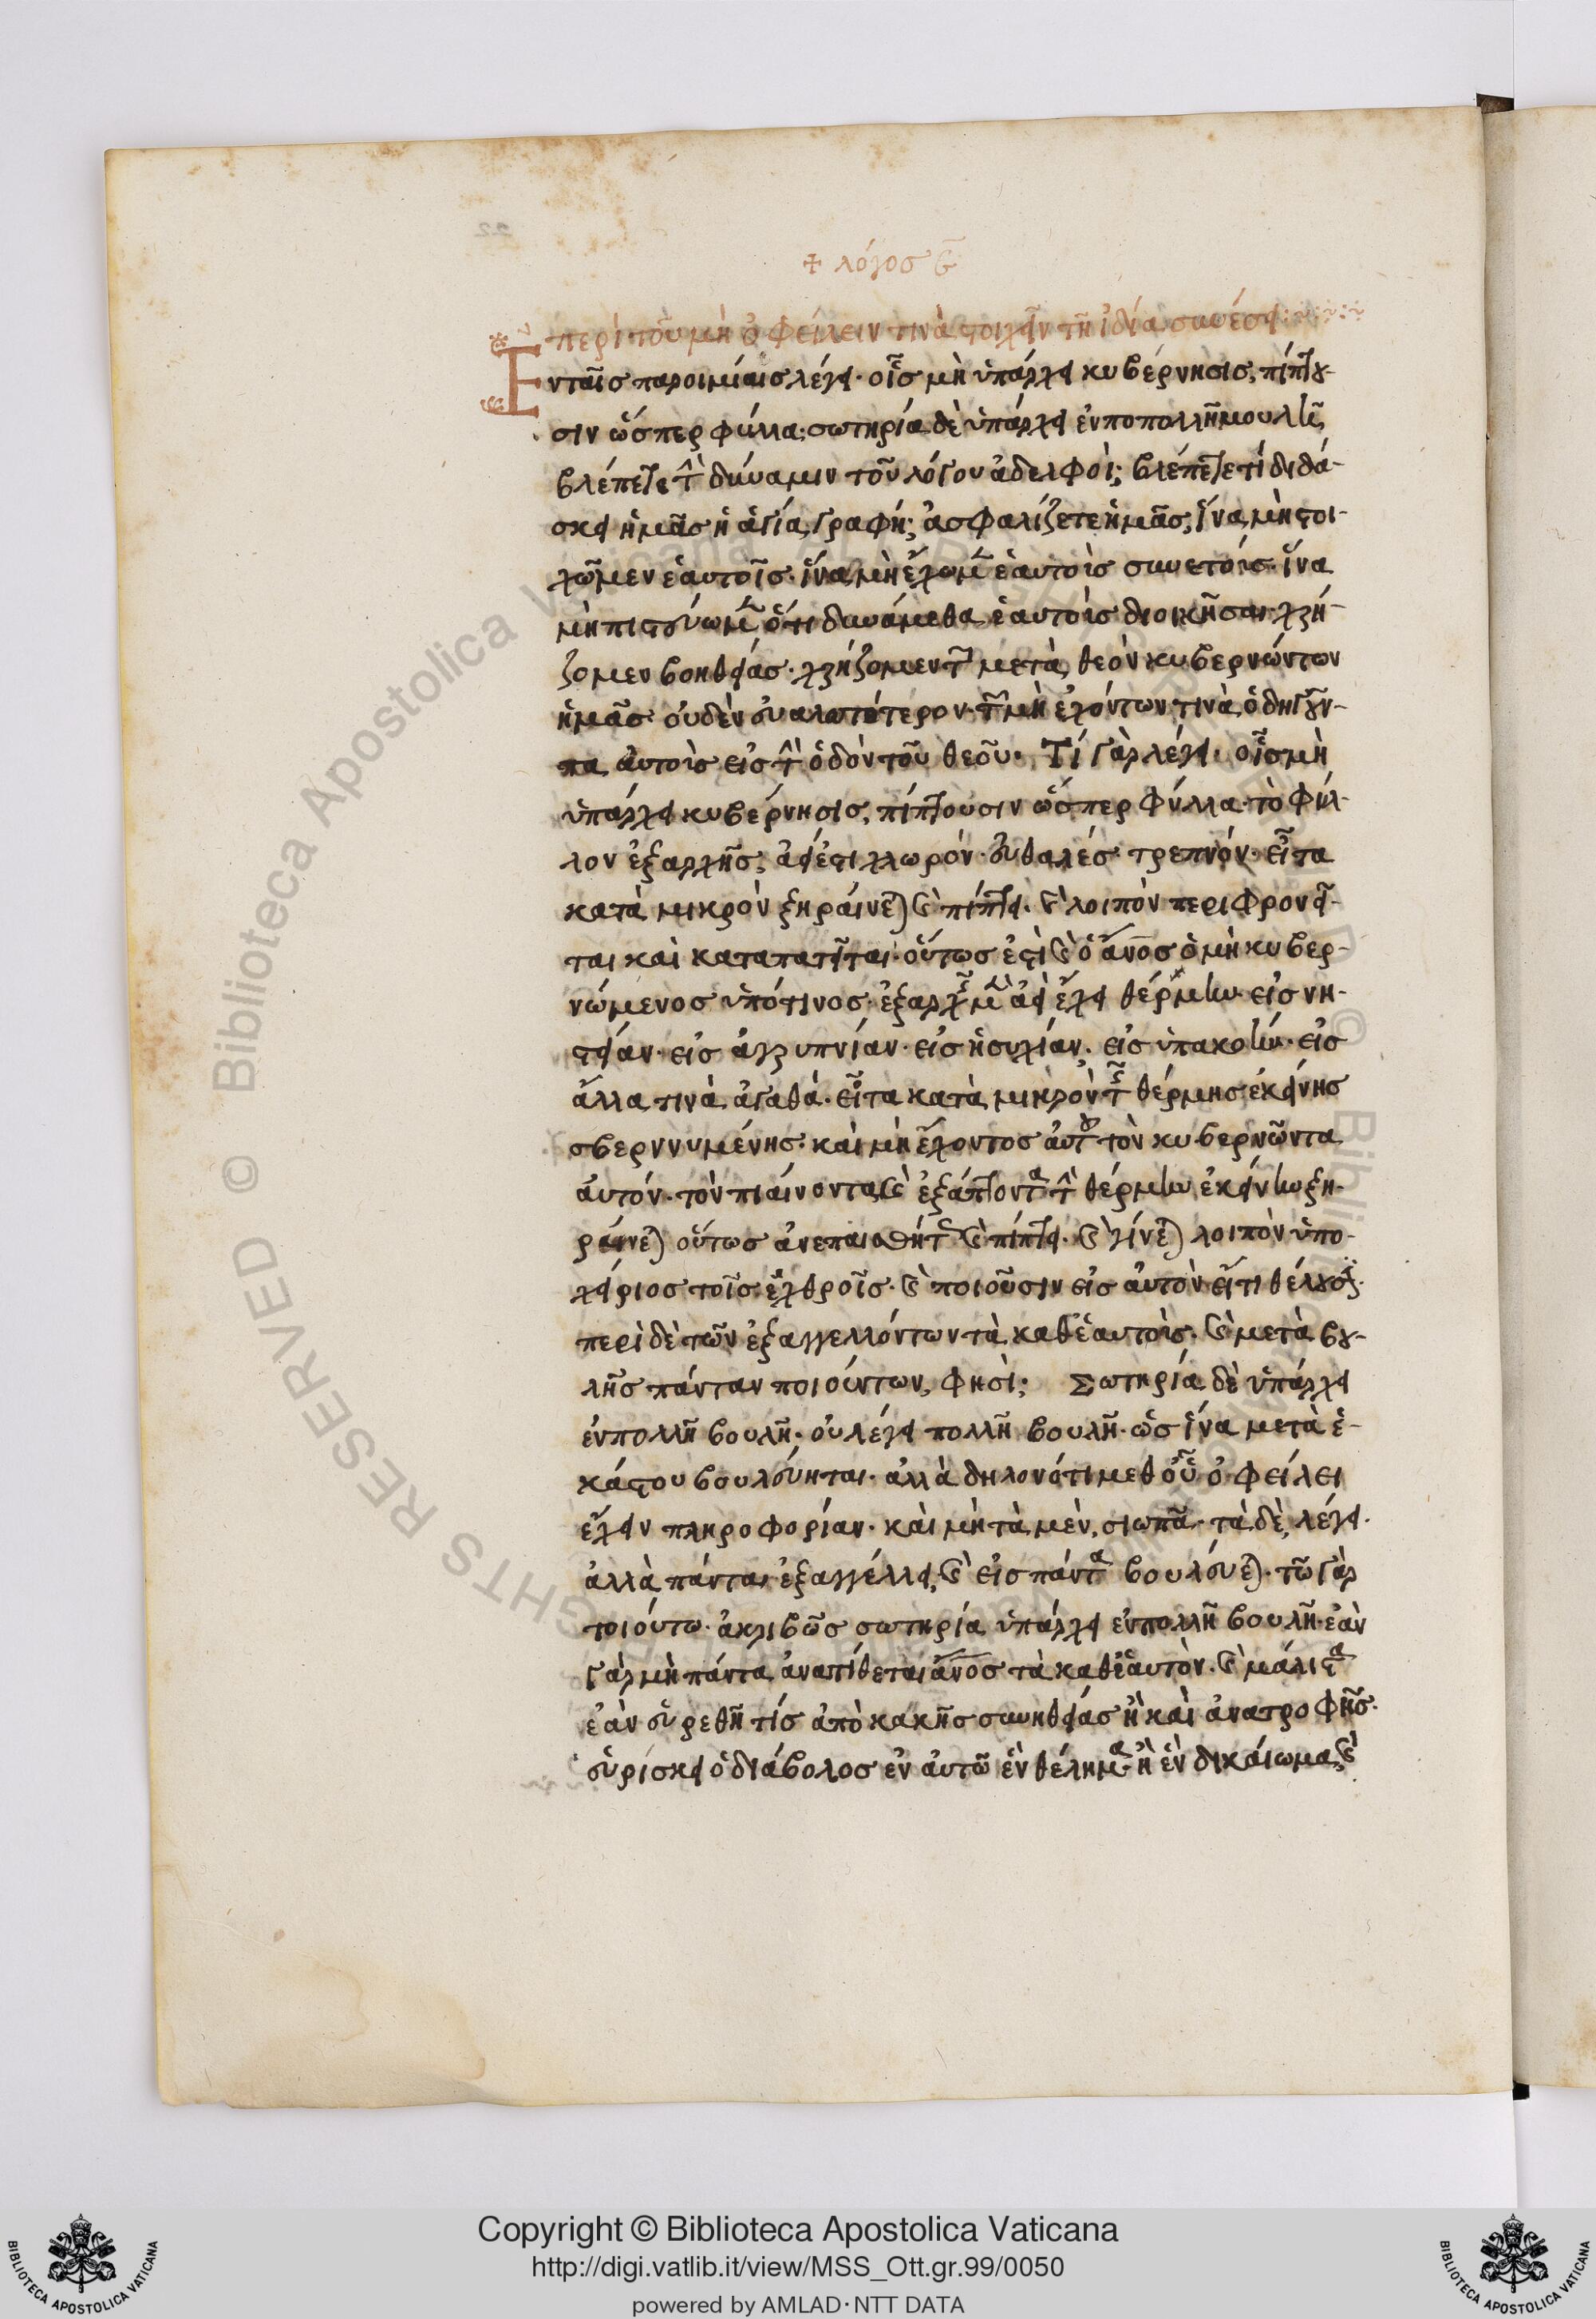 + λόγος ϛ̄
περὶ τοῦ μὴ ὀφείλειν τινὰ στοιχεῖν τῆ ἰδία συνέσει:
Ἐν ταῖς παροιμίαις λέγει· οἷς μὴ ὑπάρχει κυβέρνησις, πίπτου-
σιν ὥσπερ φύλλα· σωτηρία δὲ ὑπάρχει ἐν ποπολλῆ μουλῆ,
βλέπετε τὴν δύναμιν τοῦ λόγου ἀδελφοί; βλέπετε τί διδά-
σκει ἡμᾶς ἡ ἁγία γραφή; ἀσφαλίζετε ἡμᾶς, ἵνα μὴ στοι-
χῶμεν ἑαυτοῖς· ἵνα μὴ ἔχωμεν ἑαυτοὺς συνετούς· ἵνα
μὴ πιστεύωμεν ὅτι δυνάμεθα ἑαυτοὺς διοικῆσαι· χρή-
ζομεν βοηθείας· χρήζομεν τῶν μετὰ θεὸν κυβερνώντων
ἡμᾶς· οὐδὲν εὐαλωτότερον τῶν μὴ ἐχόντων τινὰ ὁδηγοῦν-
τα αὐτοὺς εἰς τὴν ὁδὸν τοῦ θεοῦ· Τί γὰρ λέγει· οἷς μὴ
ὑπάρχει κυβέρνησις, πίπτουσιν ὥσπερ φύλλα· τὸ φύλ-
λον ἐξαρχῆς, ἀεί ἐστι χλωρόν· εὐθαλές· τρεπνόν· εἶτα
κατὰ μικρὸν ξηραίνεται καὶ πίπτει· καὶ λοιπὸν περιφρονεῖ-
ται καὶ καταπατεῖται· οὕτως ἐστὶ καὶ ὁ ἄνος ὁ μὴ κυβερ-
νώμενος ὑπό τινος· ἐξαρχῆς μὲν ἀεὶ ἔχει θέρμην· εἰς νη-
στείαν· εἰς ἀγρυπνίαν· εἰς ἡσυχίαν· εἰς ὑπακοήν· εἰς
ἄλλα τινὰ ἀγαθά· εἶτα κατὰ μικρὸν τῆς θέρμης ἐκείνης
σβερννυμένης· καὶ μὴ ἔχοντος αὐτοῦ τὸν κυβερνῶντα
αὐτόν· τὸν πιαίνοντα καὶ ἐξάπτοντα τὴν θέρμην ἐκείνην ξη-
ραίνεται οὕτως ἀνεπαισθήτως καὶ πίπτει· καὶ γίνεται λοιπὸν ὑπο-
χείριος τοῖς ἐχθροῖς· καὶ ποιοῦσιν εἰς αὐτὸν εἴ τι θέλουσι·
περὶ δὲ τῶν ἐξαγγελλόντων τὰ καθ ἑαυτοὺς· καὶ μετὰ βου-
λῆς πάνταν ποιούντων, φησί· Σωτηρία δὲ ὑπάρχει
ἐν πολλῆ βουλῆ· οὐ λέγει πολλῆ βουλῆ· ὡς ἵνα μετὰ ἑ-
κάστου βουλεύηται· ἀλλὰ δηλονότι μεθ οὗ ὀφείλει
ἔχειν πληροφορίαν· καὶ μὴ τὰ μὲν, σιωπᾶ· τὰ δὲ, λέγει·
ἀλλὰ πάντα ἐξαγγέλλει, καὶ εἰς πάντα βουλεύεται· τῶ γὰρ
τοιούτω· ἀκριβῶς σωτηρία ὑπάρχει ἐν πολλῆ βουλῆ· ἐὰν
γὰρ μὴ πάντα ἀνατίθεται ἄνος τὰ καθ ἑαυτὸν· καὶ μάλιστα
ἐὰν εὑρεθῆ τίς ἀπὸ κακῆς συνηθείας ἢ καὶ ἀνατροφῆς·
εὑρίσκει ὁ διάβολος ἐν αὐτῶ ἓν θέλημα· ἢ ἓν δικαίωμα, καὶ
Copyright © Biblioteca Apostolica Vaticana
http://digi.vatlib.it/view/MSS_Ott.gr.99/0050
powered by AMLAD·NTT DATA